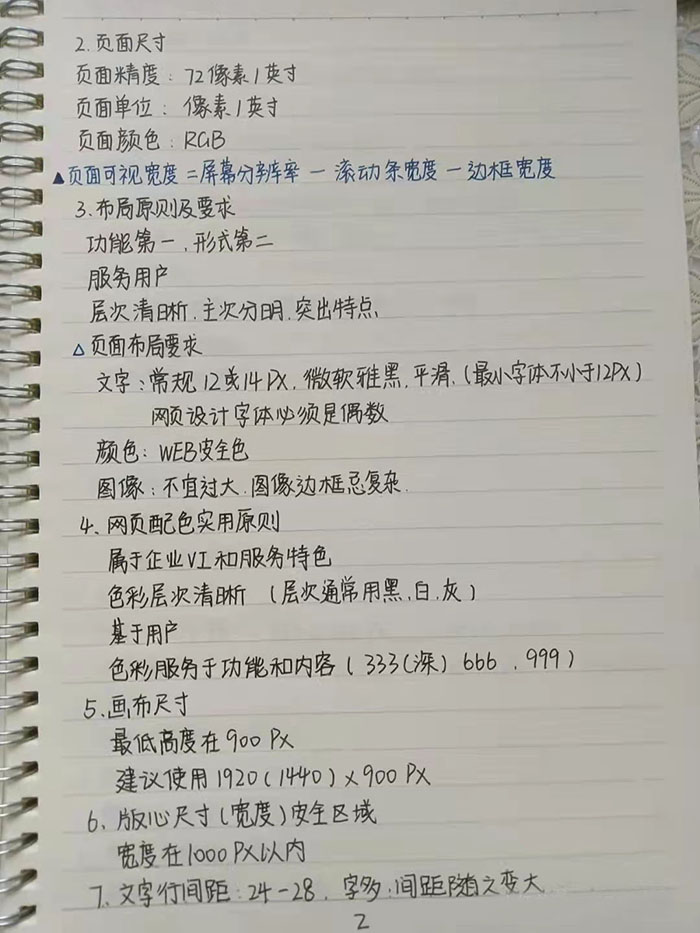 2.页面尺寸
页面精度：72像素/英寸
页面单位：像素/英寸
页面颜色：RGB
▲页面可视宽度=屏幕分辨率－滚动条宽度－边框宽度
3.布局原则及要求
功能第一、形式第二
服务用户
层次清晰、主次分明、突出特点、
△页面布局要求
文字：常规12或14PX、微软雅黑、平滑、(最小字体不小于12PX)
网页设计字体必须是偶数
颜色：WEB安全色
图像：不宜过大、图像边框忌复杂.
4、网页配色实用原则
属于企业VI和服务特色
色彩层次清晰 (层次通常用黑、白、灰)
基于用户
色彩服务于功能和内容(333(深) 666 、999)
5、画布尺寸
最低高度在900 PX
建议使用1920(1440)×900 PX
6、版心尺寸(宽度)安全区域
宽度在1000PX以内
7、文字行间距：24-28、字多:间距随之变大
2